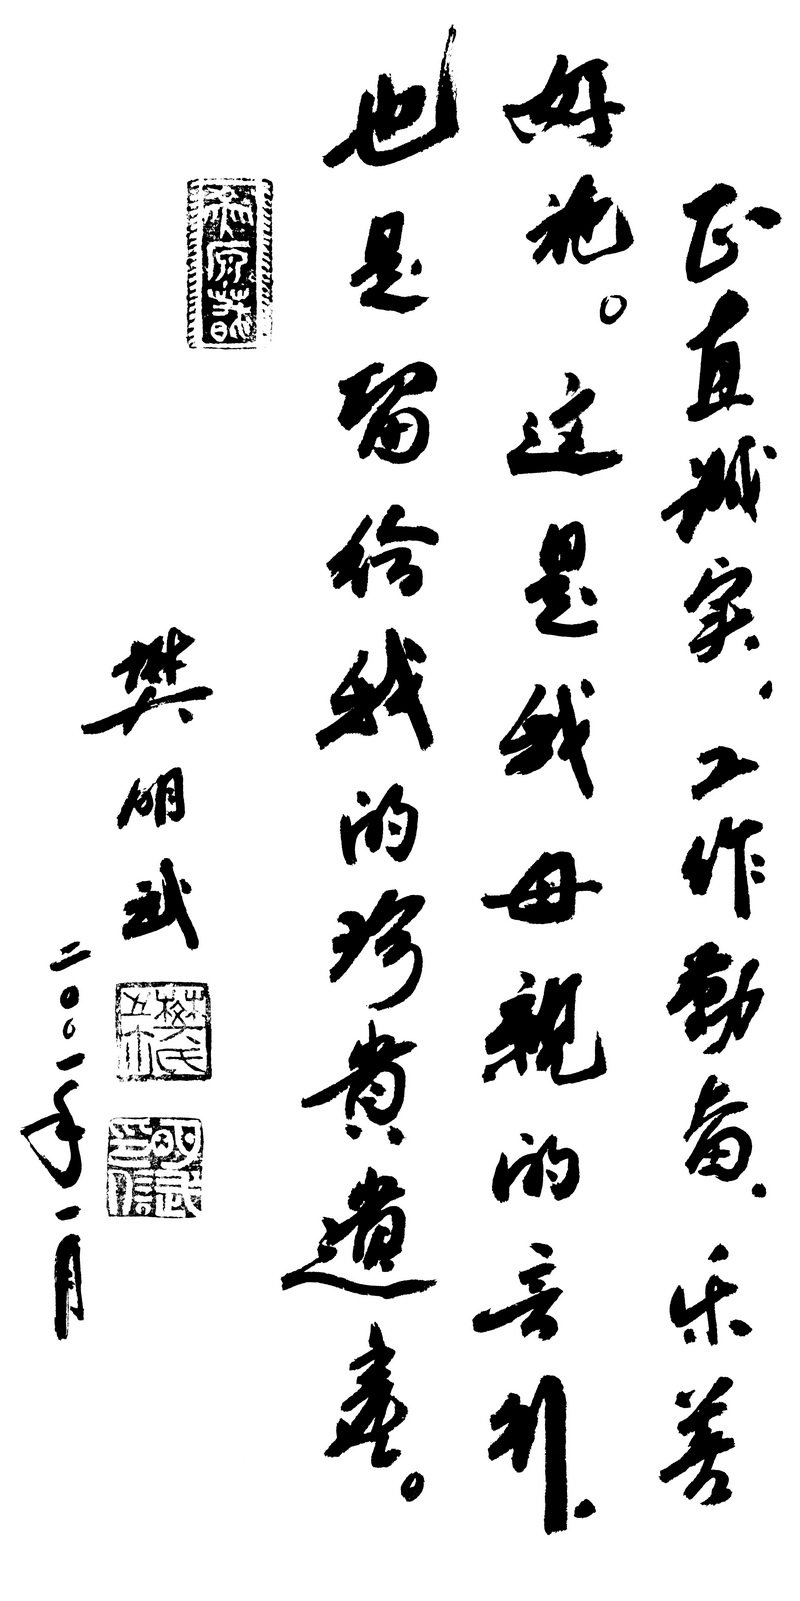 正直诚实、工作勤奋、乐善
好施。这是我母亲的言行、
也是留给我的珍贵遗产。
樊明武
二〇〇一年一月
樊氏
明武印信